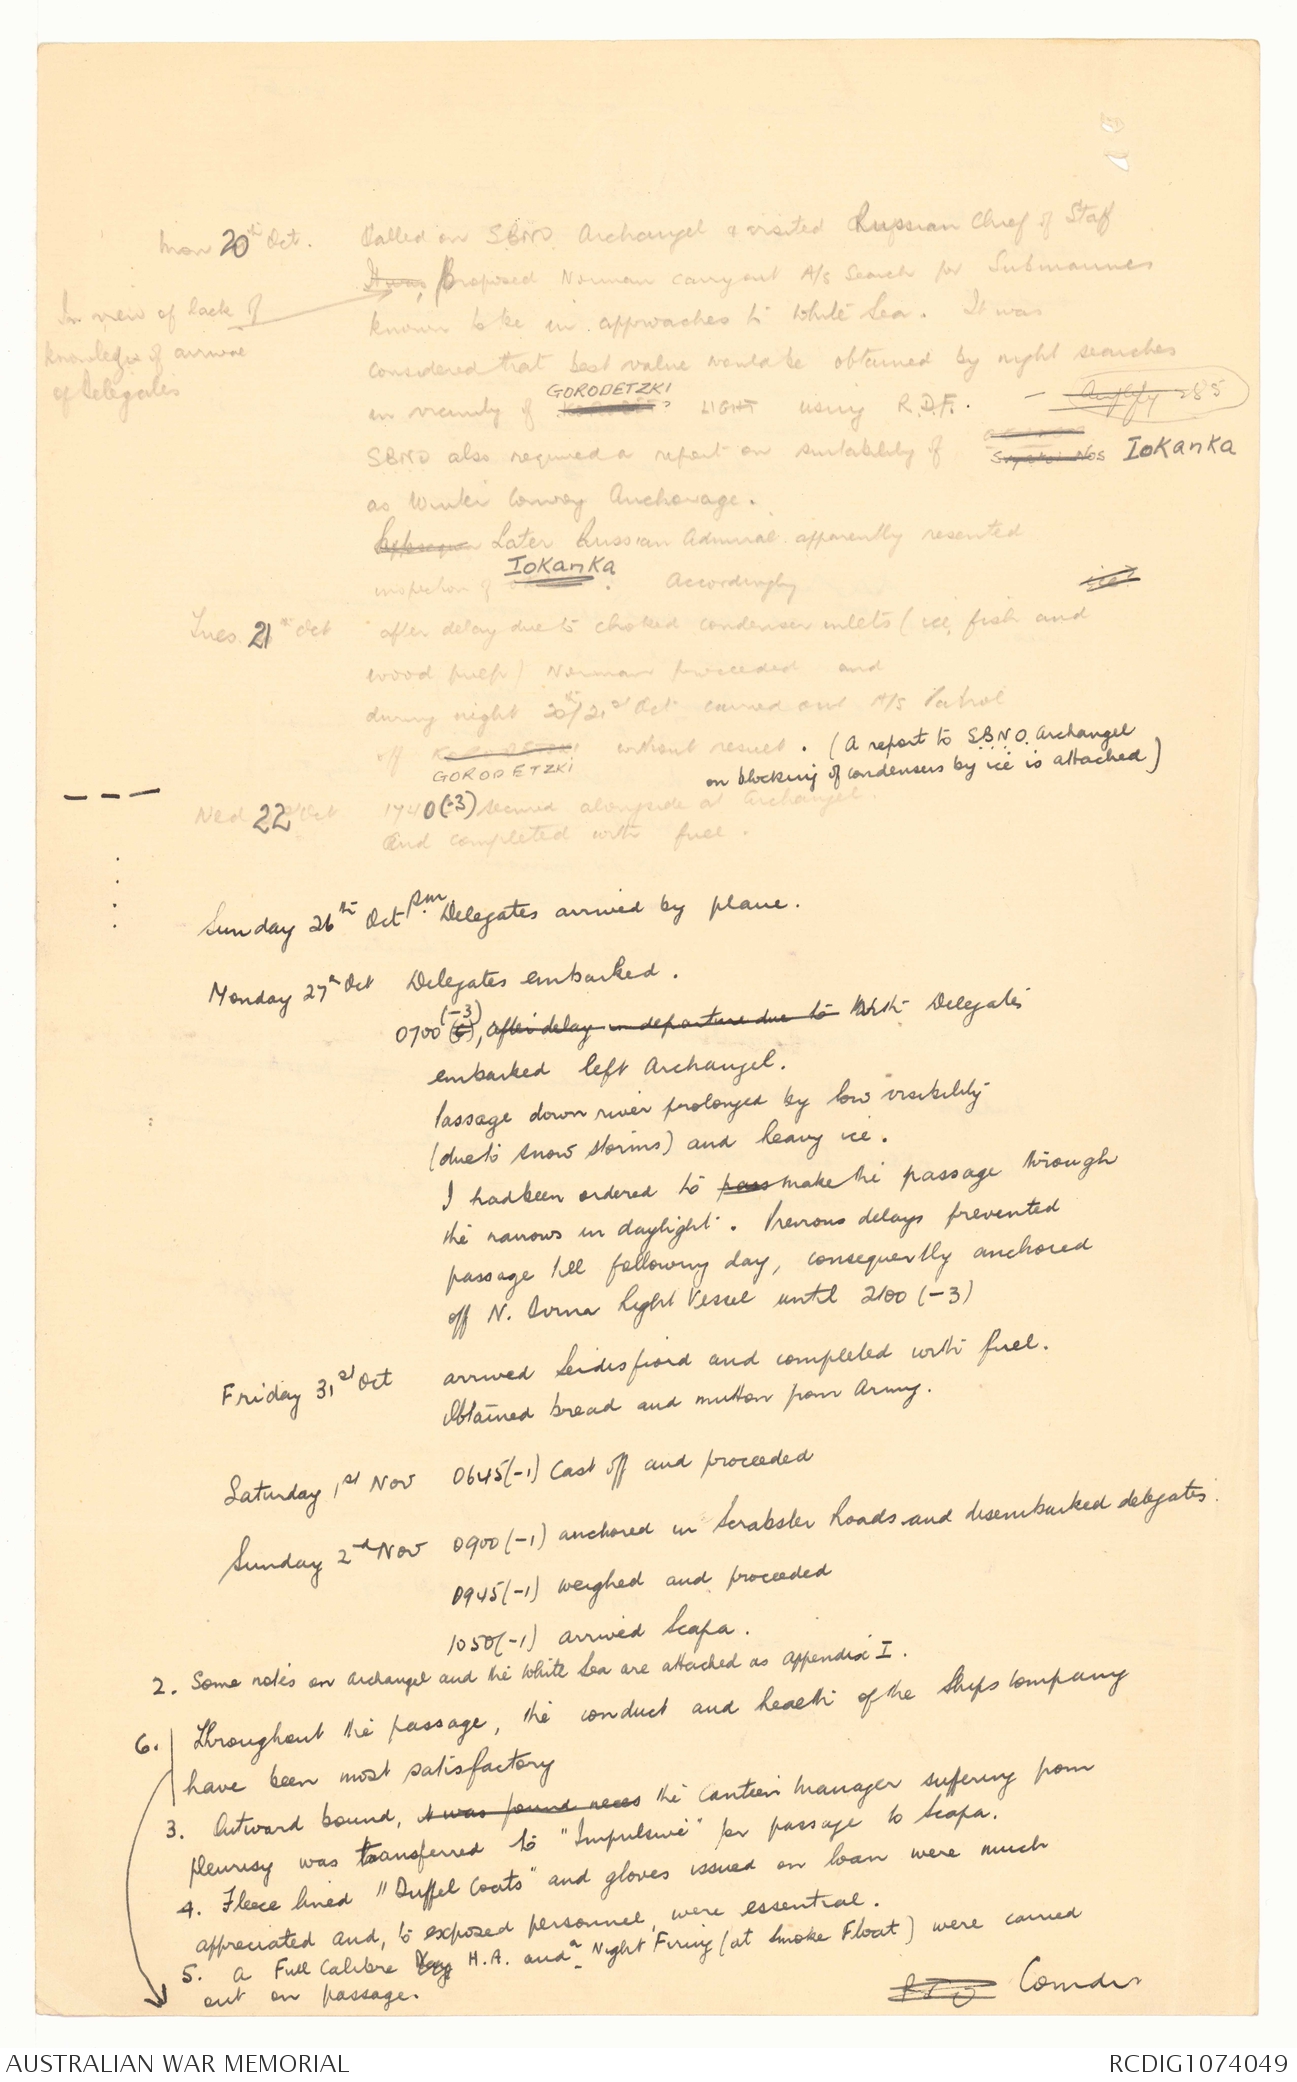 Mon 20th Oct. Called on SBNO Archangel & visited Russian Chief of Staff
It was, Proposed Norman carry out A/S Search for Submarines
In view of lack of
knowledge of arrival
of Delegates
known to be in approaches to White Sea. It was
considered that best value would be obtained by night searches
GORODETZKI
in vicinity of LIGHT using R.D.F. - Amplify 285
SBNO also required a report on suitability of Nos IOKANKA
as Winter Convoy Anchorage.
Later Russian Admiral apparently resented
IOKANKA
inspection of . Accordingly ice
Tues 21st Oct after delay due to choked condenser inlets (ice, fish and
wood pulp) Norman proceeded and
during night 20th/21st Oct carried out A/S Patrol
off without result. (A report to S.B.N.O. Archangel
GORODETZKI
on blocking of condensers by ice is attached)
Wed 22 Oct 1740(-3) secured alongside at Archangel.
And completed with fuel.
Sunday 26th Oct p.m. Delegates arrived by plane.
Monday 27th Oct Delegates embarked.
(-3)
0700, after delay in departure due to With Delegates
embarked left Archangel.
Passage down river prolonged by low visibility
(due to snow storms) and heavy ice.
I had been ordered to pass make the passage through
the narrows in daylight. Previous delays prevented
passage till following day, consequently anchored
off N. Dvina Light Vessel until 2100 (-3)
Friday 31st Oct arrived Seidisfiord and completed with fuel.
Obtained bread and mutton from Army.
Saturday 1st Nov 0645(-1) Cast off and proceeded
Sunday 2nd Nov 0900(-1) anchored in Scrabster Roads and disembarked delegates.
0945(-1) weighed and proceeded
1050(-1) arrived Scapa.
2. Some notes on Archangel and the White Sea are attached as appendix I.
6. Throughout the passage, the conduct and health of the Ships Company
have been most satisfactory
3. Outward bound, it was found neces the Canteen Manager suffering from
pleurisy was transferred to "Impulsive" for passage to Scapa.
4. Fleece lined "Duffel Coats" and gloves issued on loan were much
appreciated and, to exposed personnel, were essential.
5. A Full Calibre H.A. and a Night Firing (at Smoke Float) were carried
out on passage.
Comdr
AUSTRALIAN WAR MEMORIAL
RCDIG1074049